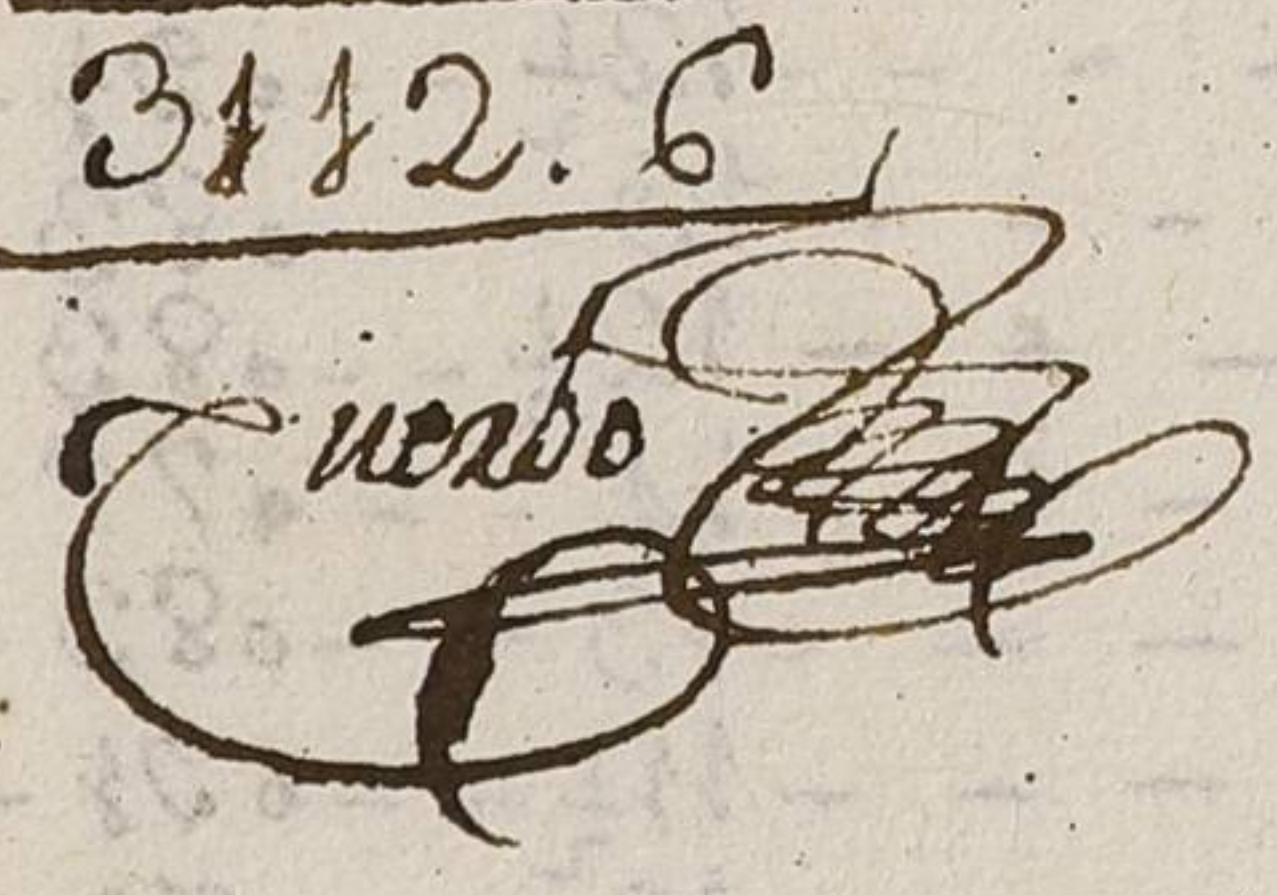 3112.6
Cuerbo